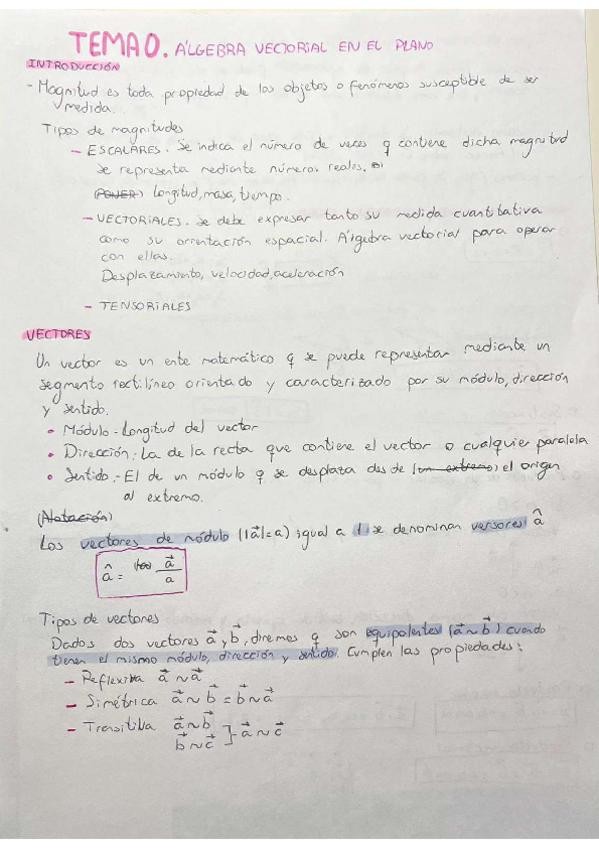 TEMA 0. ÁLGEBRA VECTORIAL EN EL PLANO
INTRODUCCIÓN
- Magnitud es toda propiedad de los objetos o fenómenos susceptible de ser
medida.
Tipos de magnitudes
- ESCALARES. Se indica el número de veces q contiene dicha magnitud
se representa mediante números reales.
(PONER) Longitud, masa, tiempo.
- VECTORIALES. Se debe expresar tanto su medida cuantitativa
como su orientación espacial. Álgebra vectorial para operar
con ellas.
Desplazamiento, velocidad, aceleración
- TENSORIALES
VECTORES
Un vector es un ente matemático q se puede representar mediante un
segmento rectilíneo orientado y caracterizado por su módulo, dirección
y sentido.
• Módulo - Longitud del vector
• Dirección: La de la recta que contiene el vector o cualquier paralela
• Sentido - El de un módulo q se desplaza desde (un extremo) el origen
al extremo.
(Notación)
Los vectores de módulo (|a⃗|=a) igual a 1 se denominan versores â
â = a⃗/a
Tipos de vectores
Dados dos vectores a⃗, b⃗, diremos q son equipolentes (a⃗ ~ b⃗) cuando
tienen el mismo módulo, dirección y sentido. Cumplen las propiedades:
- Reflexiva a⃗ ~ a⃗
- Simétrica a⃗ ~ b⃗ = b⃗ ~ a⃗
- Transitiva a⃗ ~ b⃗
b⃗ ~ c⃗ } a⃗ ~ c⃗